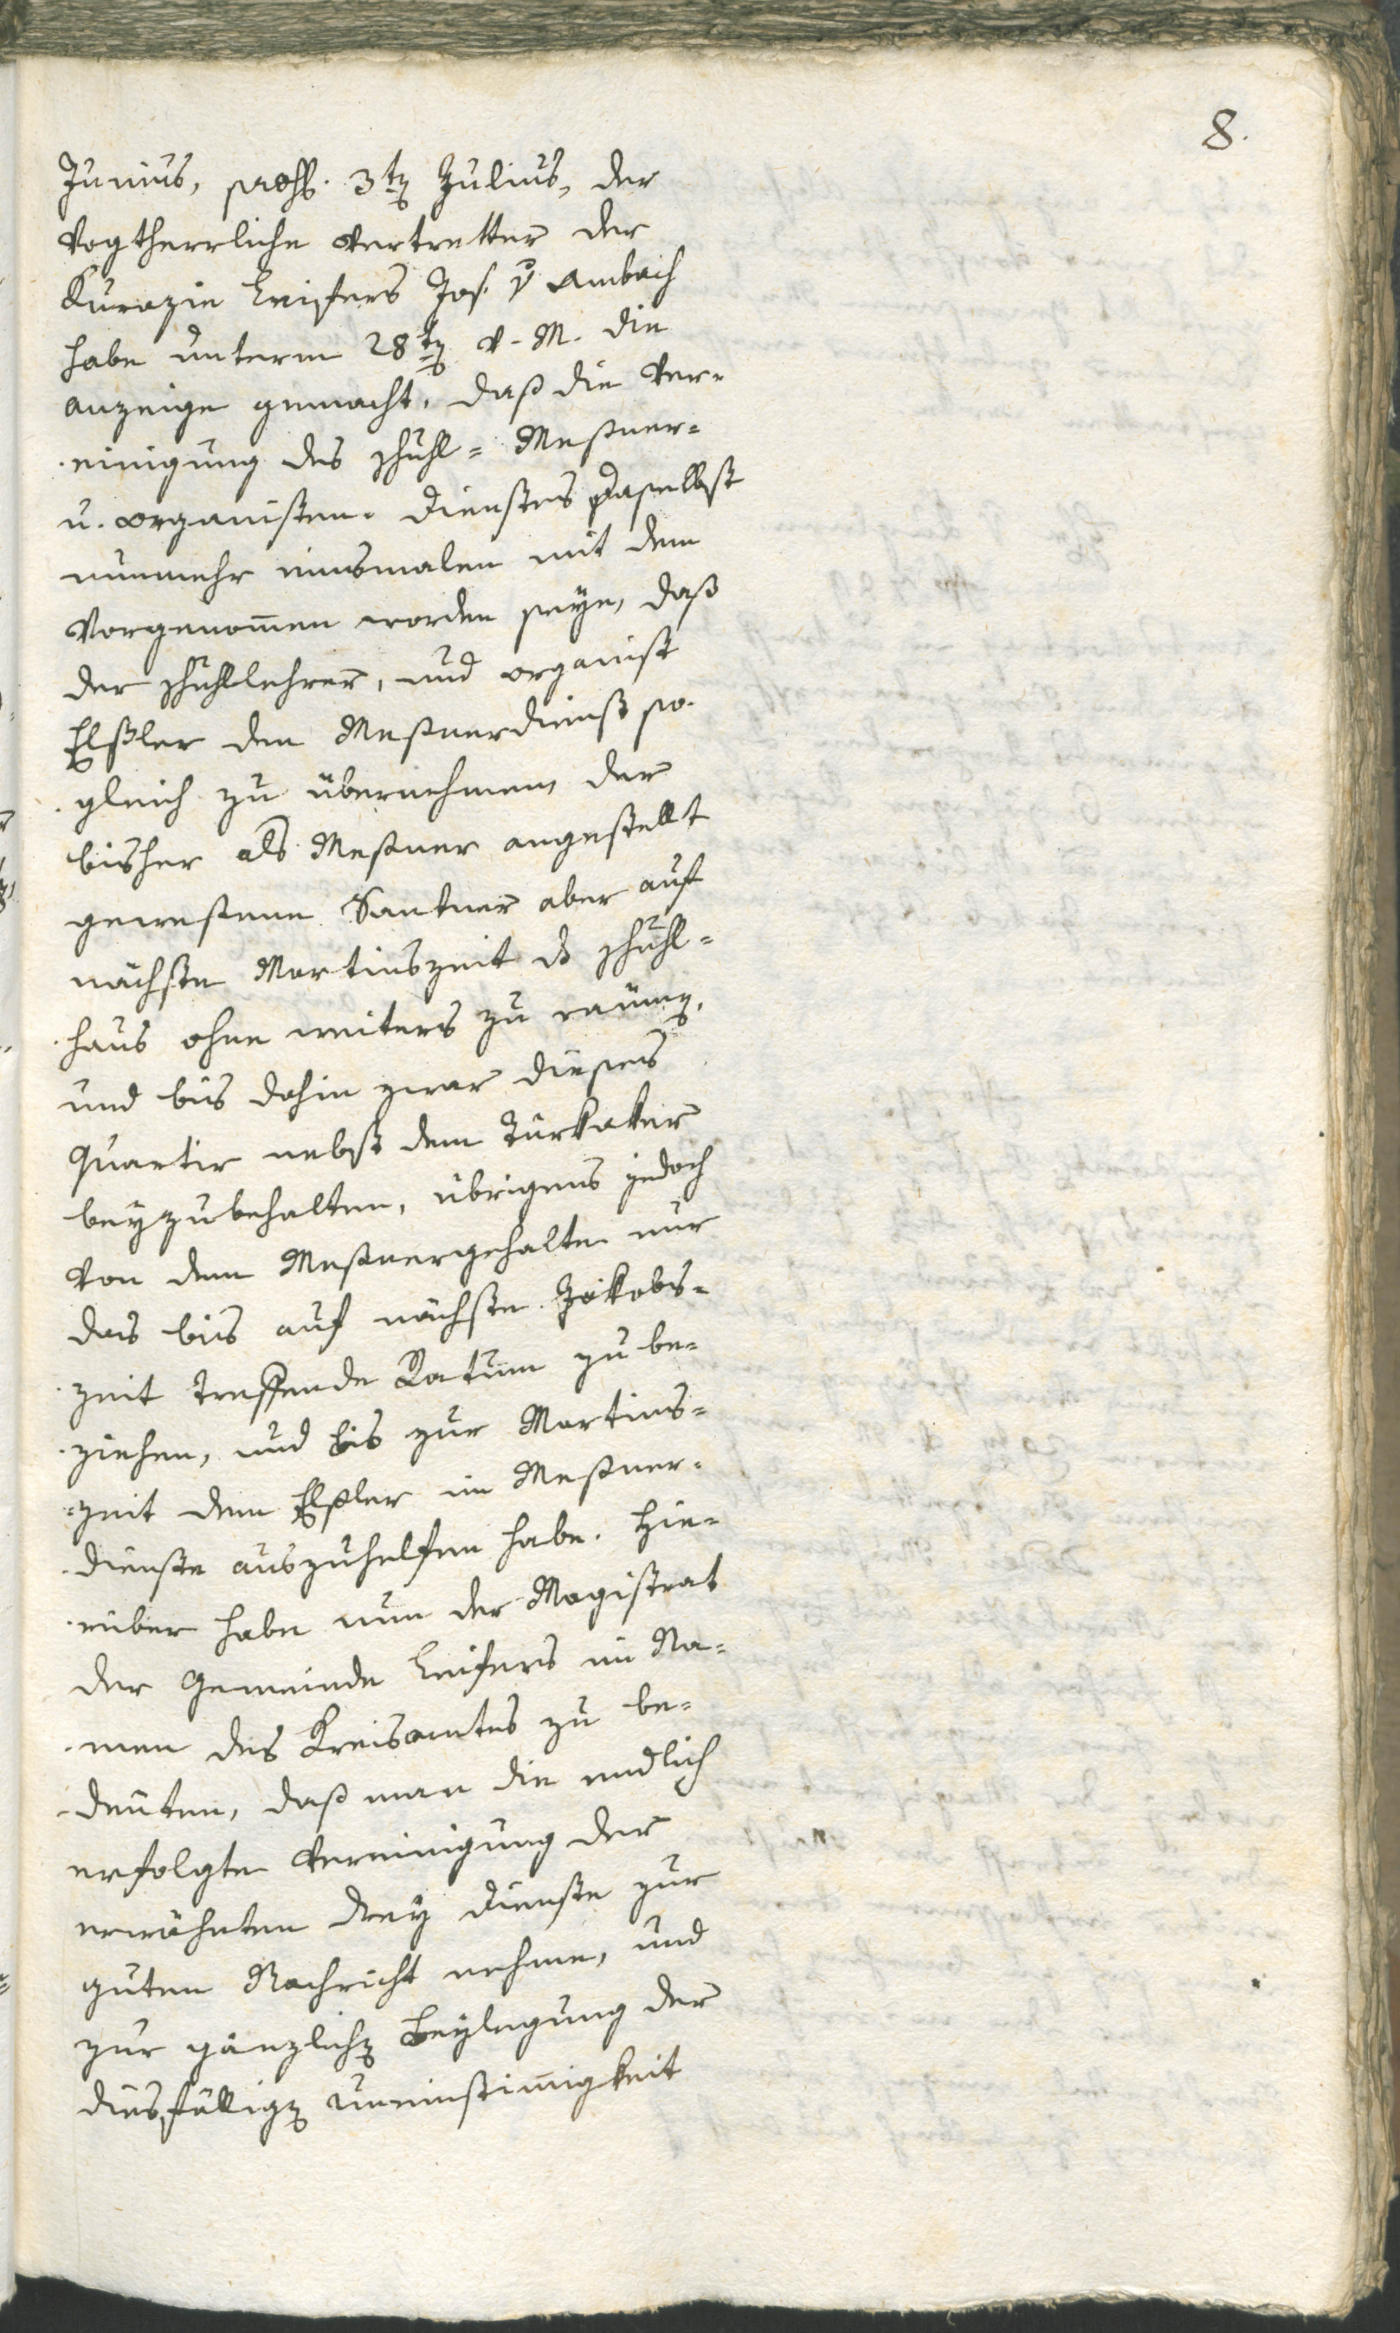 8.
Junius, præs. 3ten Julius, der
Vogtherrliche Vertretter der
Kurazie Leifers Jos. v Ambach
habe unterm 28ten v. M. die
Anzeige gemacht, daß die Ver-
einigung des Schuhl- Meßner-
u. Organisten- Dienstes daselbst
nunmehr einsmalen mit dem
Vorgenommen worden seye, daß
der Schuhllehrer, und Organist
Elßler den Meßnerdienst so-
gleich zu übernehmen, der
bisher als Meßner angestellt
geweßene Santner aber auf
nächste Martinszeit ds Schuhl-
haus ohne weiters zu raumen,
und bis dahin zwar dieses
Quartir nebst dem Türkaker
beyzubehalten, übrigens jedoch
von dem Meßnergehalte nur
das bis auf nächste Jakobs-
zeit treffende Ratum zu be-
ziehen, und bis zur Martins-
zeit dem Elßler im Meßner-
dienste auszuhelfen habe. Hie-
rüber habe nun der Magistrat
der Gemeinde Leifers im Na-
men des Kreisamtes zu be-
deuten, daß man die endlich
erfolgte Vereinigung der
erwähnten drey Dienste zur
guten Nachricht nehme, und
zur gänzlichen Beylegung der
diesfälligen Uneinstimmigkeit